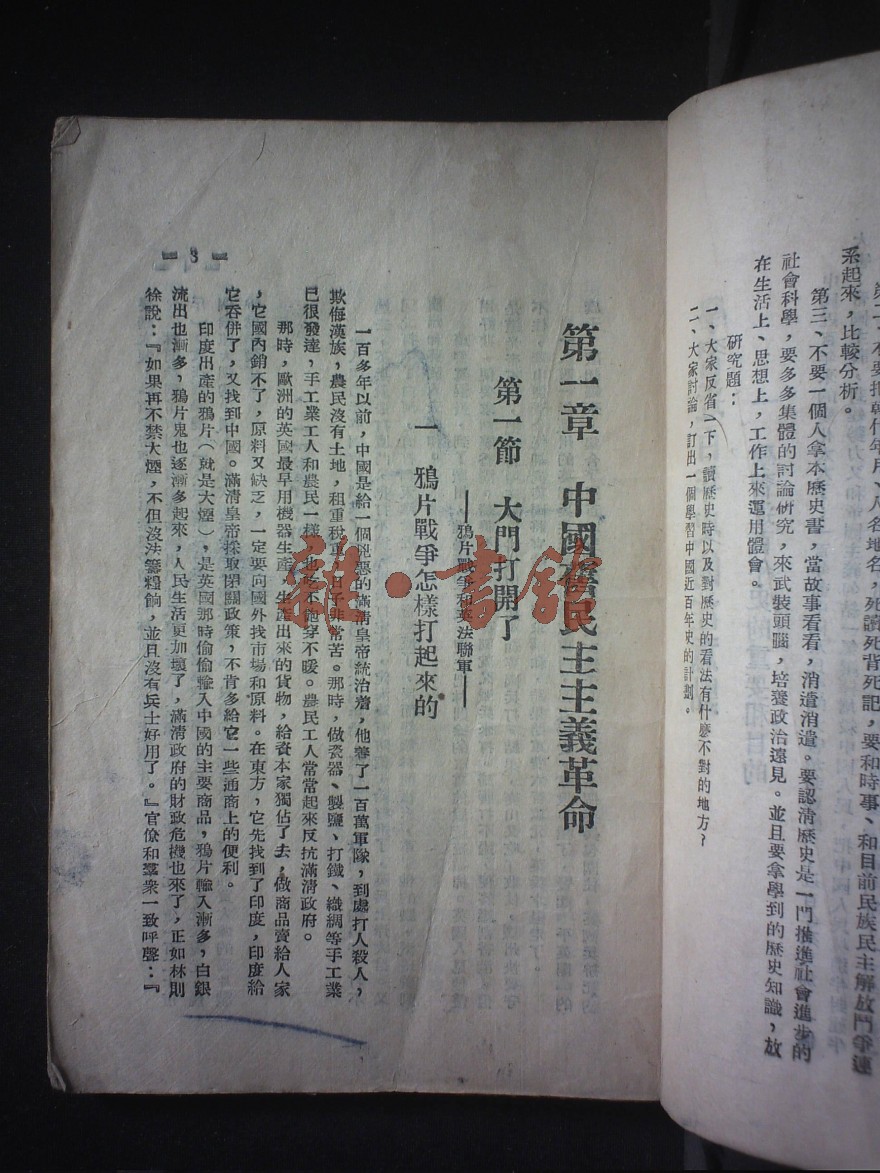 系起來，比較分析。
第三、不要一個人拿本歷史書，當故事看看，消遣消遣。要認清歷史是一門推進社會進步的
社會科學，要多多集體的討論研究，來武裝頭腦，培養政治遠見。並且要拿學到的歷史知識，放
在生活上、思想上，工作上來運用體會。
研究題：
一、大家反省一下，讀歷史時以及對歷史的看法有什麼不對的地方？
二、大家討論，訂出一個學習中國近百年史的計劃。
第一章　中國舊民主主義革命
第一節　大門打開了
——鴉片戰爭和英法聯軍——
一　鴉片戰爭怎樣打起來的
一百多年以前，中國是給一個兇惡的滿清皇帝統治着，他養了一百萬軍隊，到處打人殺人，
欺侮漢族，農民沒有土地，租重稅重，日子非常苦。那時，做瓷器、製鹽、打鐵、織綢等手工業
已很發達，手工業工人和農民一樣，也吃不飽穿不暖。農民工人常常起來反抗滿清政府。
那時，歐洲的英國最早用機器生產，生產出來的貨物，給資本家獨佔了去，做商品賣給人家
，它國內銷不了，原料又缺乏，一定要向國外找市場和原料。在東方，它先找到了印度，印度給
它吞併了，又找到中國。滿清皇帝採取閉關政策，不肯多給它一些通商上的便利。
印度出產的鴉片（就是大煙），是英國那時偷偷輸入中國的主要商品，鴉片輸入漸多，白銀
流出也漸多，鴉片鬼也逐漸多起來，人民生活更加壞了，滿清政府的財政危機也來了，正如林則
徐說：『如果再不禁大煙，不但沒法籌糧餉，並且沒有兵士好用了。』官僚和羣衆一致呼聲：『
3
雜·書館